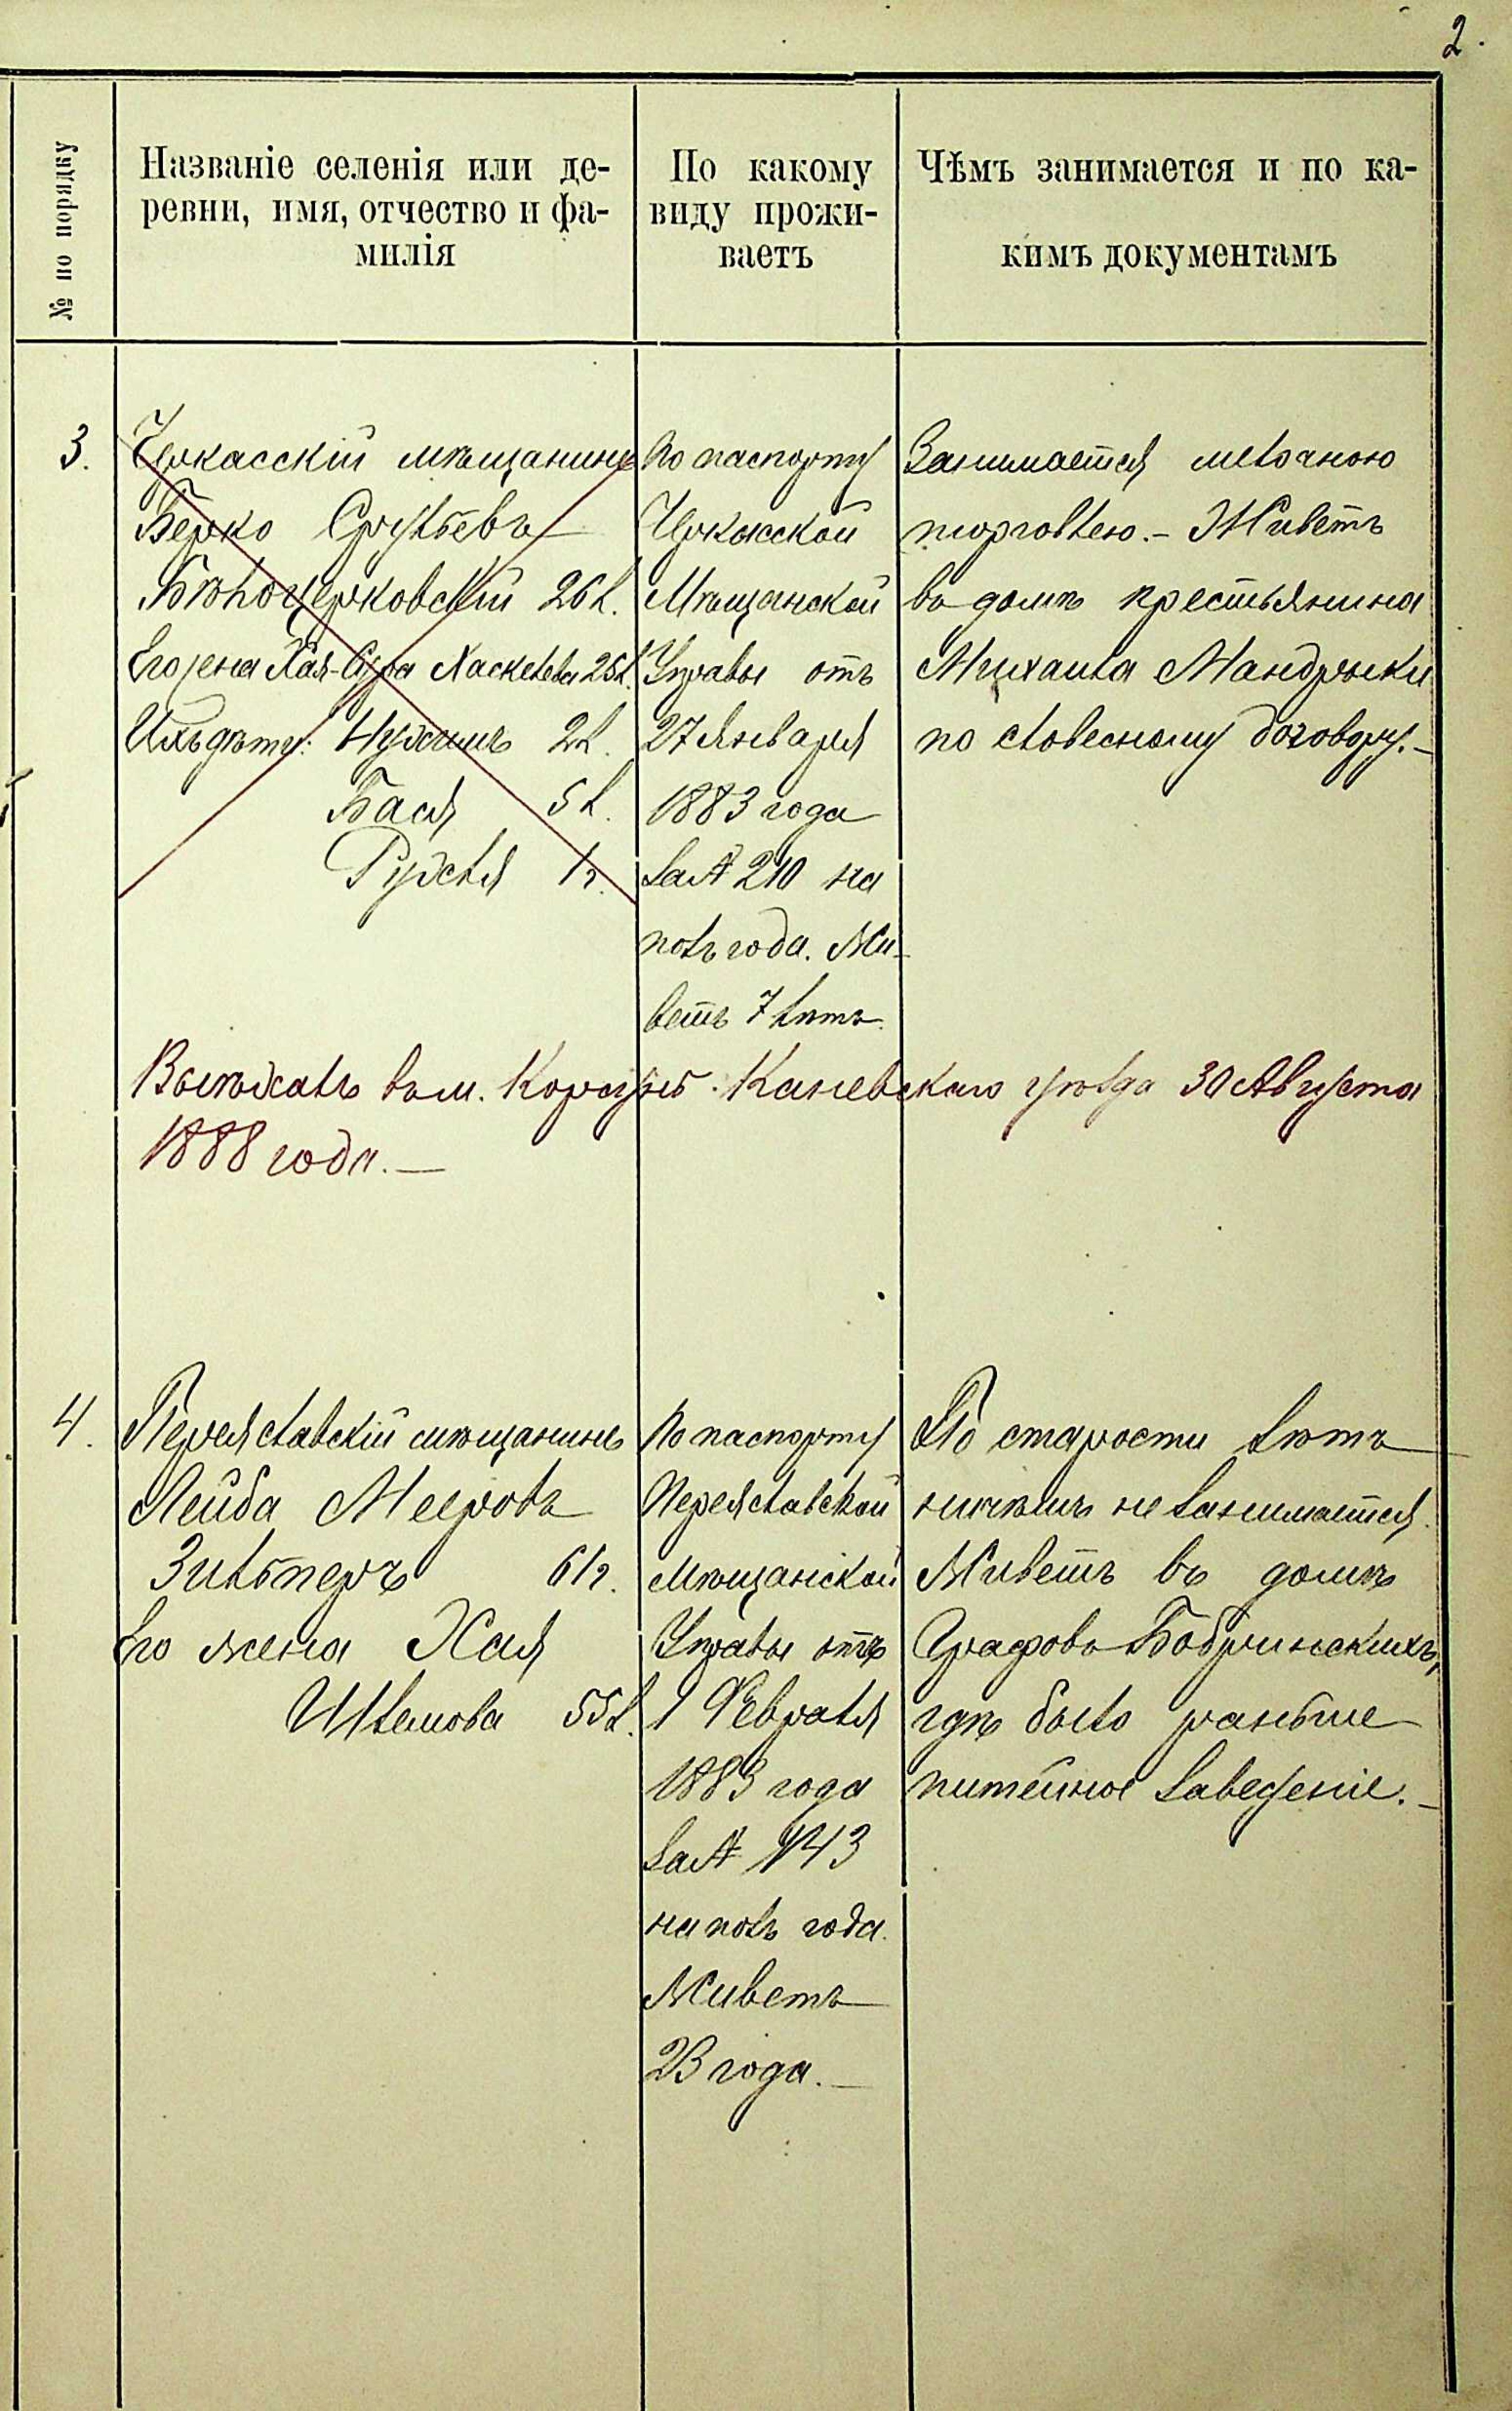 2.
№ по порядку
Названіе селенія или де-
ревни, имя, отчество и фа-
милія
По какому
виду прожи-
ваетъ
Чѣмъ занимается и по ка-
кимъ документамъ
3.
Черкасскій мѣщанинъ
Берко Срульевъ
Бѣлоцерковскій 26 л.
Его жена Хая-Сура Хаскелева 25 л.
Ихъ дѣти: Нухимъ 2 л.
Бася 5 л.
Рухля 1 г.
По паспорту
Черкасской
Мѣщанской
Управы отъ
27 Января
1883 года
за № 210 на
полъ года. Жи-
ветъ 7 лѣтъ.
Занимается мелочною
торговлею. - Живетъ
въ домѣ крестьянина
Михаила Мандрыки
по словесному договору. -
Выѣхалъ въ м. Корсунь Каневскаго уѣзда 30 Августа
1888 года. —
4.
Переяславскій мѣщанинъ
Лейба Мееровъ
Зильперъ 61 г.
Его жена Хая
Шлемова 55 л.
По паспорту
Переяславской
мѣщанской
Управы отъ
1 Февраля
1883 года
за № 143
на полъ года.
Живетъ
23 года. —
По старости лѣтъ
ничѣмъ не занимается.
Живетъ въ домѣ
Графовъ Бобринскихъ,
гдѣ было раньше
питейное заведеніе. -